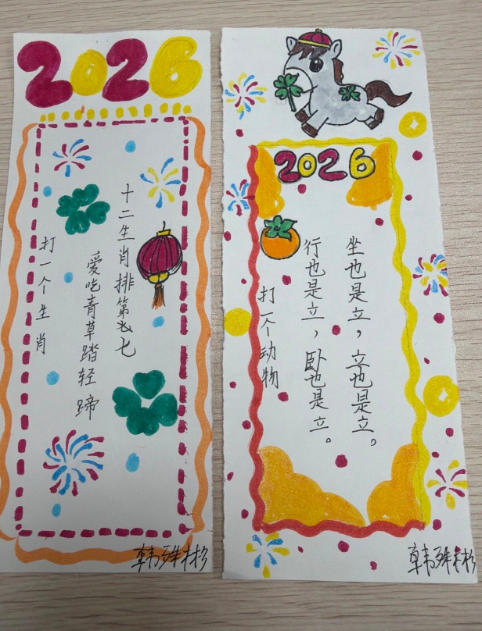 2026
十二生肖排第七
爱吃青草踏轻蹄
打一个生肖
2026
坐也是立，立也是立。
行也是立，卧也是立。
打一个动物